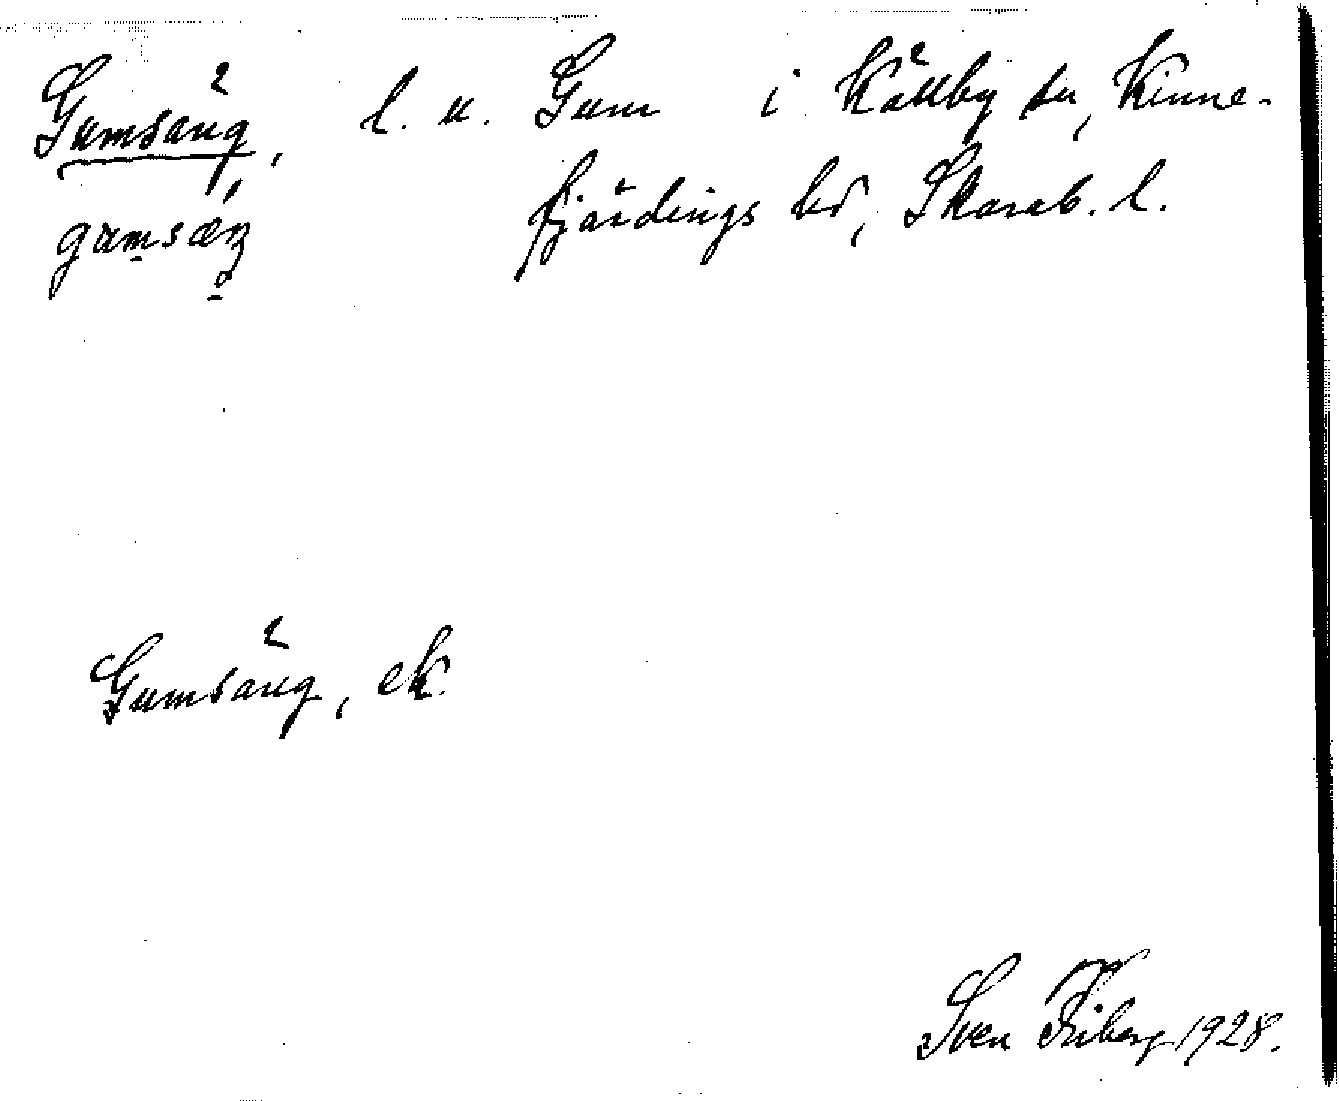 Gumsäng, l. u. Gum i Källby sn, Kinne-
fjärdings hd, Skarab. l.
Gumsäng, ek.
Sven Friberg 1928.